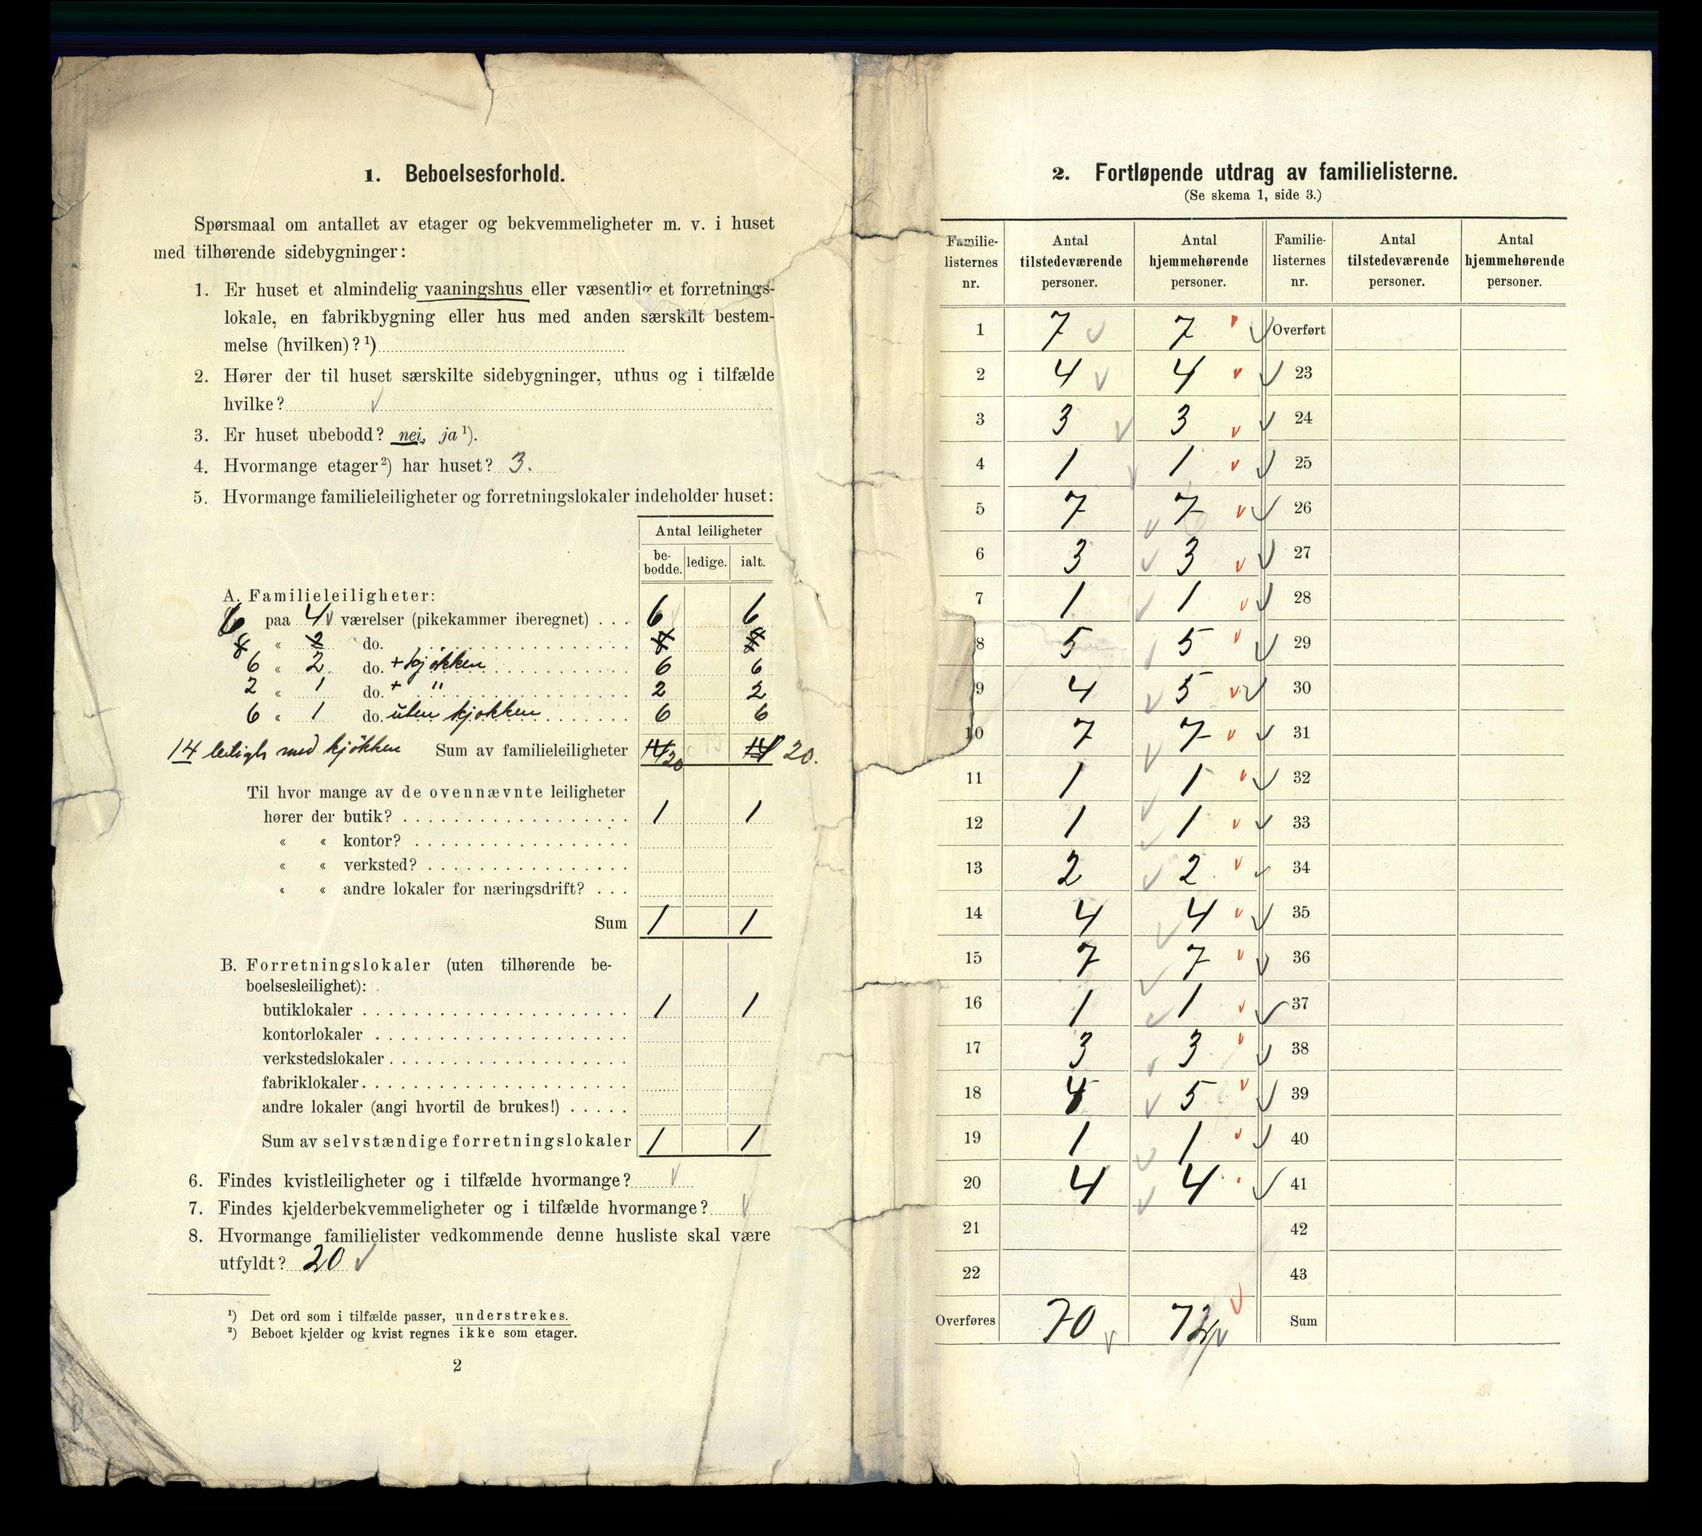 1. Beboelsesforhold.
Spørsmaal om antallet av etager og bekvemmeligheter m. v. i huset
med tilhørende sidebygninger:
1. Er huset et almindelig vaaningshus eller væsentlig et forretnings-
lokale, en fabrikbygning eller hus med anden særskilt bestem-
melse (hvilken)?¹)
2. Hører der til huset særskilte sidebygninger, uthus og i tilfælde
hvilke? ✓
3. Er huset ubebodd? nei, ja¹).
4. Hvormange etager²) har huset? 3.
5. Hvormange familieleiligheter og forretningslokaler indeholder huset:
Antal leiligheter
be-bodde. ledige. ialt.
A. Familieleiligheter:
6 paa 4 værelser (pikekammer iberegnet) . . . 6 6
8 « 2 do. 8 8
6 « 2 do. + kjøkken 6 6
2 « 1 do. + " 2 2
6 « 1 do. uten kjøkken 6 6
14 leiligh med kjøkken Sum av familieleiligheter 14 20 14 20.
Til hvor mange av de ovennævnte leiligheter
hører der butik? 1 1
« « kontor?
« « verksted?
« « andre lokaler for næringsdrift?
Sum 1 1
B. Forretningslokaler (uten tilhørende be-
boelsesleilighet):
butiklokaler 1 1
kontorlokaler
verkstedslokaler
fabriklokaler
andre lokaler (angi hvortil de brukes!)
Sum av selvstændige forretningslokaler 1 1
6. Findes kvistleiligheter og i tilfælde hvormange? ✓
7. Findes kjelderbekvemmeligheter og i tilfælde hvormange? ✓
8. Hvormange familielister vedkommende denne husliste skal være
utfyldt? 20 ✓
¹) Det ord som i tilfælde passer, understrekes.
²) Beboet kjelder og kvist regnes ikke som etager.
2
2. Fortløpende utdrag av familielisterne.
(Se skema 1, side 3.)
Familie-listernes nr. Antal tilstedeværende personer. Antal hjemmehørende personer. Familie-listernes nr. Antal tilstedeværende personer. Antal hjemmehørende personer.
1 7 7 Overført
2 4 4 23
3 3 3 24
4 1 1 25
5 7 7 26
6 3 3 27
7 1 1 28
8 5 5 29
9 4 5 30
10 7 7 31
11 1 1 32
12 1 1 33
13 2 2 34
14 4 4 35
15 7 7 36
16 1 1 37
17 3 3 38
18 4 5 39
19 1 1 40
20 4 4 41
21 42
22 43
Overføres 70 72 Sum